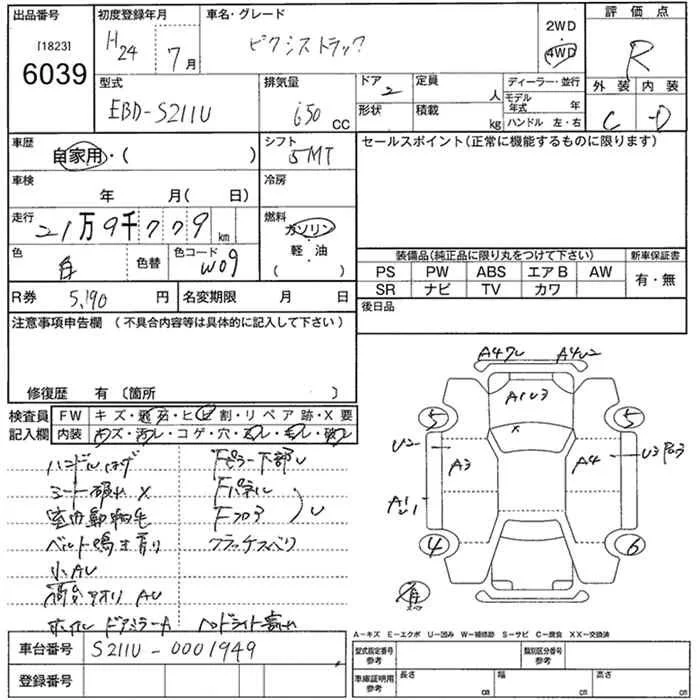 出品番号
[1823]
6039
初度登録年月
H24 7月
車名・グレード
ピクシストラック
2WD
4WD
評価点
R
外装 内装
C D
型式
EBD-S211U
排気量
650 CC
ドア 2
形状
定員 人
積載 kg
ディーラー・並行
モデル年式 年
ハンドル 左・右
車歴
自家用・( )
シフト
5MT
車検
年 月( 日)
冷房
走行
21万9千779 km
燃料
ガソリン
軽・油
( )
色
白
色替
色コード
W09
R券 5,190 円
名変期限 月 日
セールスポイント(正常に機能するものに限ります)
装備品(純正品に限り丸をつけて下さい)
PS PW ABS エアB AW
SR ナビ TV カワ
新車保証書
有・無
後日品
注意事項申告欄 (不具合内容等は具体的に記入して下さい)
修復歴 有 〔箇所 〕
検査員記入欄
FW キズ・飛石・ヒビ割・リペア跡・X要
内装 キズ・汚レ・コゲ・穴・
ハンドルはげ
シート破れ X
室内動物毛
ベルト鳴き有り
小AU
荷台アオリ AU
ドアミラーキ
ヘッドライト
Fピラー下部U
Fパネル
Fフロア
U
クラッチスベリ
A4ワレ A4U2
A1U3
X
5 5
U2 A3 A4 U3
A1
U1
4 6
A−キズ E−エクボ U−凹み W−補修跡 S−サビ C−腐食 XX−交換済
車台番号 S211U-0001949
登録番号
型式指定番号 参考
類別区分番号 参考
車庫証明用 参考
長さ cm 幅 cm 高さ cm